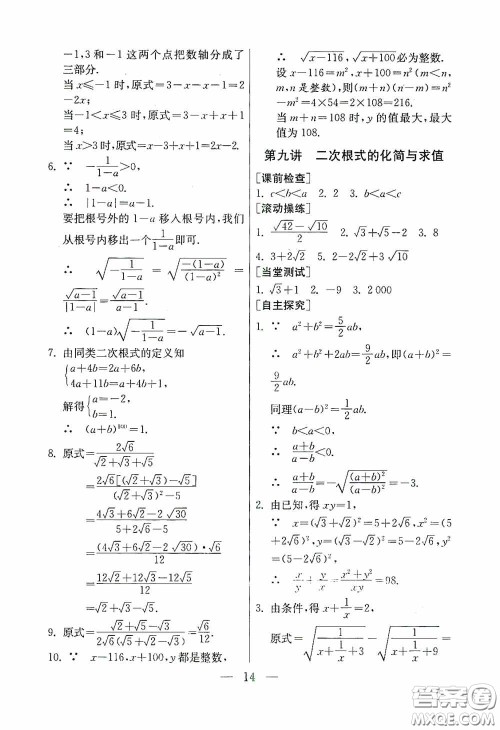 -1,3和-1这两个点把数轴分成了
三部分.
当x≤-1时,原式=3-x-x-1=2
-2x;
当-1<x≤3时,原式=3-x+x+1
=4;
当x>3时,原式=x-3+x+1=2x-2.
6. ∵ -1/(1-a)>0,
∴ 1-a<0.
∴ |1-a|=a-1.
要把根号外的1-a移入根号内,我们
从根号内移出一个1/(1-a)即可.
∴ √(-1/(1-a))=√(-(1-a)/(1-a)²)=
√(a-1)/|1-a|=√(a-1)/(a-1).
∴ (1-a)√(-1/(1-a))=-√(a-1).
7. 由同类二次根式的定义知
{a+4b=2a+6b,
4a+11b=a+4b+1,
解得{a=-2,
b=1.
∴ (a+b)¹⁰⁰=1.
8. 原式=2√6/(√2+√3+√5)
=2√6[(√2+√3)-√5]/((√2+√3)²-5)
=(4√3+6√2-2√30)/(5+2√6-5)
=(4√3+6√2-2√30)·√6/12
=(12√2+12√3-12√5)/12
=√2+√3-√5.
9. 原式=(√2+√5-√3)/(2√6(√5+√2-√3))=√6/12.
10. ∵ x-116,x+100,y都是整数,
∴ √(x-116),√(x+100)必为整数.
设x-116=m²,x+100=n²(m<n,
m,n是整数),则(m+n)(n-m)=
n²-m²=4×54=2×108=216.
当m+n=108时,y的值最大,最
大值为108.
第九讲 二次根式的化简与求值
[课前检查]
1. c<b<a 2. 2 3. b
[滚动操练]
1. (√42-√10)/2 2. √3+√5-2 3. 8
4. 3+2√2 5. 3√2+2√3+√10
[当堂测试]
1. √3+1 2. -9 3. 2 000
[自主探究]
1. ∵ a²+b²=5/2ab,
∴ a²+b²+2ab=9/2ab,即(a+b)²=
9/2ab.
同理(a-b)²=1/2ab.
∵ b<a<0,
∴ (a+b)/(a-b)<0.
∴ (a+b)/(a-b)=-√((a+b)²/(a-b)²)=-3.
2. 由已知,得xy=1.
∵ x=(√3+√2)²=5+2√6,x²=
(5+2√6)²,y=(√3-√2)²=5-2√6,y²
=(5-2√6)²,
∴ x/y+y/x=(x²+y²)/xy=98.
3. 由条件,得x+1/x=2,
原式=√(1/(x+1/x+3))-√(1/(x+1/x+9))=
14
答案圈
MXQE.COM